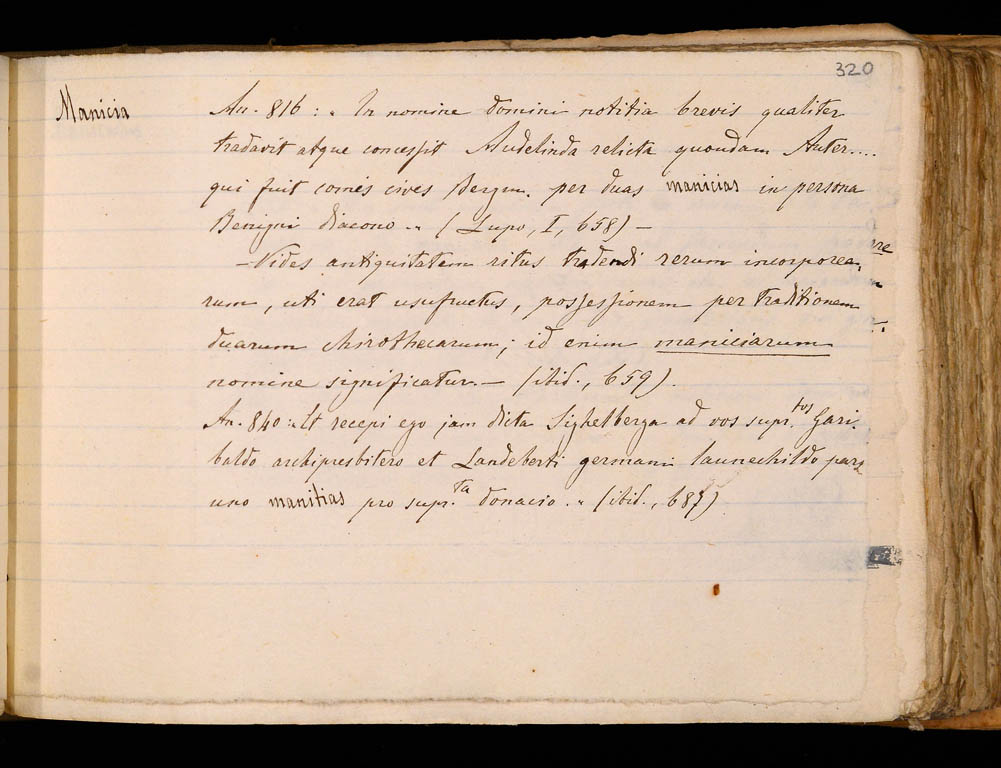 320
Manicia
An. 816: „ In nomine domini notitia brevis qualiter
tradavit atque concessit Audelinda relicta quondam Auter....
qui fuit comes cives Bergm. per duas manicias in persona
Benigni diacono „ (Lupo, I, 658) —
— Vides antiquitatem ritus tradendi rerum incorporea-
rum, uti erat usufructus, possessionem per traditionem
duarum chirothecarum; id enim maniciarum
nomine significatur. — (ibid., 659).
An. 840: „ Et recepi ego jam dicta Sighelberga ad vos supr.tos Gari-
baldo archipresbitero et Landeberti germani launechildo para
uno manitias pro supr.ta donacio. „ (ibid., 687)